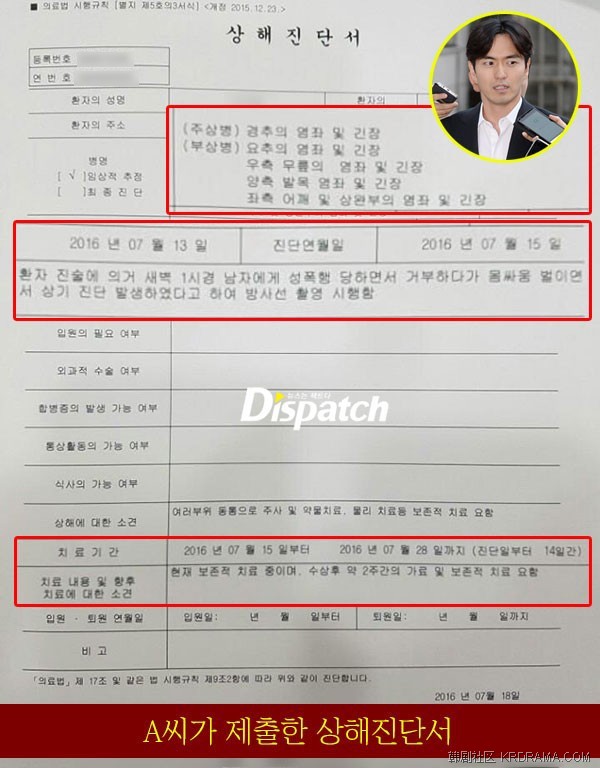 ■ 의료법 시행규칙 [별지 제5호의3서식] <개정 2015.12.23.>
상 해 진 단 서
등록번호
연 번 호
환자의 성명
환자의
환자의 주소
병명
[ √ ]임상적 추정
[ ]최 종 진 단
(주상병) 경추의 염좌 및 긴장
(부상병) 요추의 염좌 및 긴장
우측 무릎의 염좌 및 긴장
양측 발목 염좌 및 긴장
좌측 어깨 및 상완부의 염좌 및 긴장
2016 년 07 월 13 일 진단연월일 2016 년 07 월 15 일
환자 진술에 의거 새벽 1시경 남자에게 성폭행 당하면서 거부하다가 몸싸움 벌이면
서 상기 진단 발생하였다고 하여 방사선 촬영 시행함
입원의 필요 여부
외과적 수술 여부
합병증의 발생 가능 여부
뉴스는 팩트다
Dispatch
통상활동의 가능 여부
식사의 가능 여부
상해에 대한 소견 여러부위 동통으로 주사 및 약물치료, 물리 치료등 보존적 치료 요함
치 료 기 간 2016 년 07 월 15 일부터 2016 년 07 월 28 일까지 (진단일부터 14일간)
치료 내용 및 향후
치료에 대한 소견
현재 보존적 치료 중이며, 수상후 약 2주간의 가료 및 보존적 치료 요함
입원 · 퇴원 연월일 입원일: 년 월 일부터 퇴원일: 년 월 일까지
비 고
「의료법」제 17조 및 같은 법 시행규칙 제9조2항에 따라 위와 같이 진단합니다.
2016 년 07월 18일
A씨가 제출한 상해진단서
韩剧社区 KRDRAMA.COM